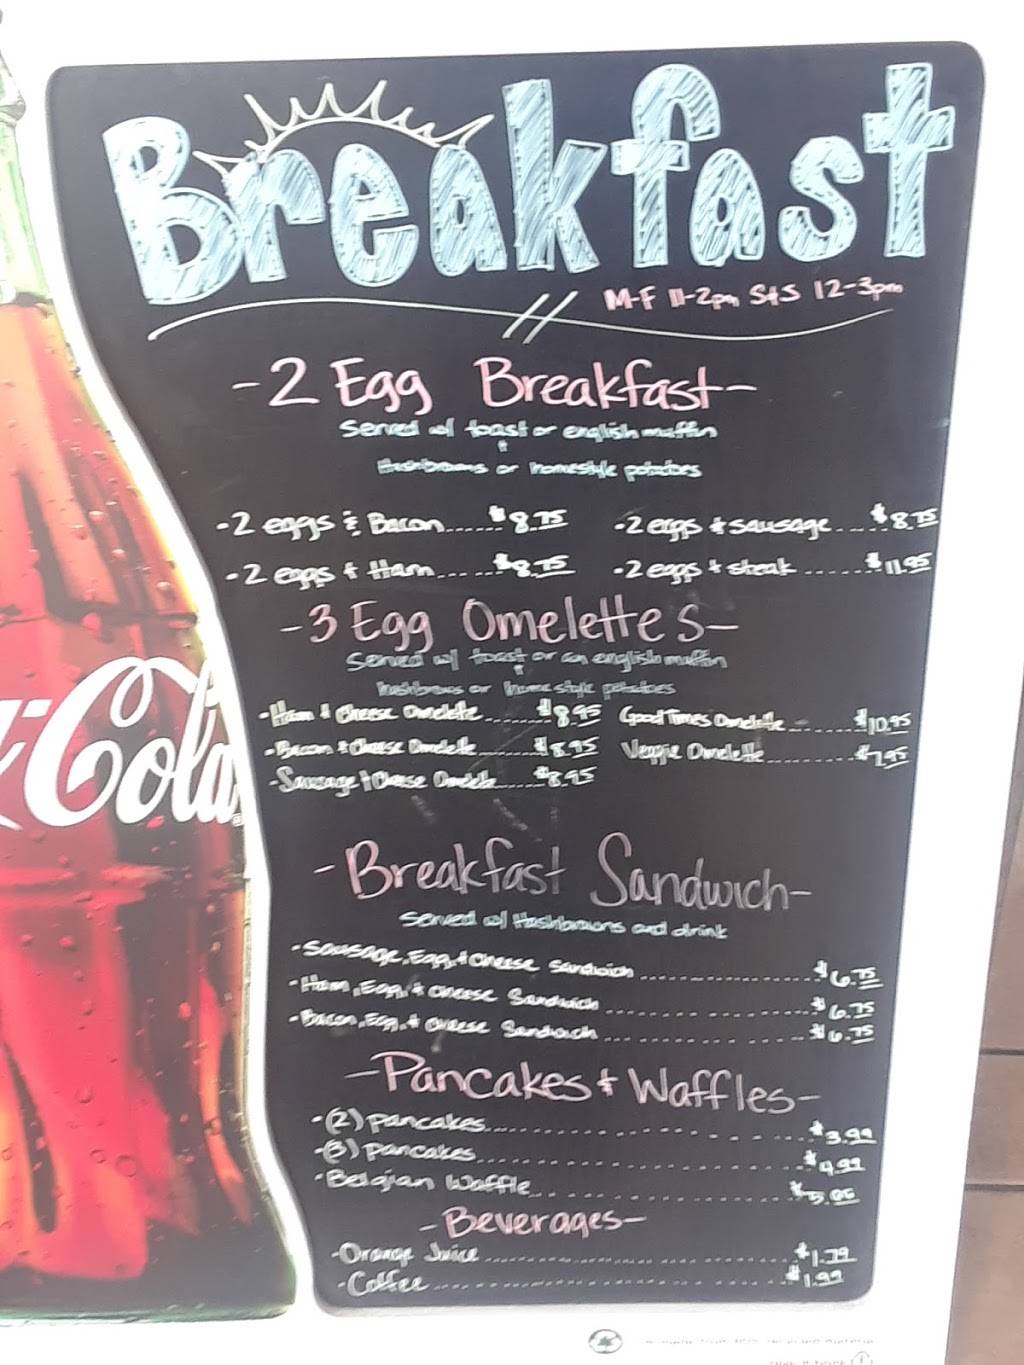 Breakfast
M-F 11-2pm S&S 12-3pm
-2 Egg Breakfast-
Served w/ toast or english muffin
+
Hashbrowns or homestyle potatoes
-2 eggs & Bacon......$8.75
-2 eggs & sausage....$8.75
-2 eggs & Ham......$8.75
-2 eggs & steak.......$11.95
-3 Egg Omelettes-
Served w/ toast or an english muffin
+
hashbrowns or homestyle potatoes
-Ham & Cheese Omelette.......$8.95
Good Times Omelette.........$10.95
-Bacon & Cheese Omelette.......$8.95
Veggie Omelette...........$7.95
-Sausage & Cheese Omelete.....$8.95
-Breakfast Sandwich-
Served w/ Hashbrowns and drink
-Sausage, Egg, & cheese sandwich.................$6.75
-Ham, Egg, & cheese Sandwich.................$6.75
-Bacon, Egg, & cheese Sandwich.................$6.75
-Pancakes & Waffles-
-(2) pancakes.......................$3.99
-(3) pancakes.......................$4.99
-Belgian Waffle.......................
-Beverages-
-Orange Juice.......................$1.79
-Coffee.......................$1.99
Cola